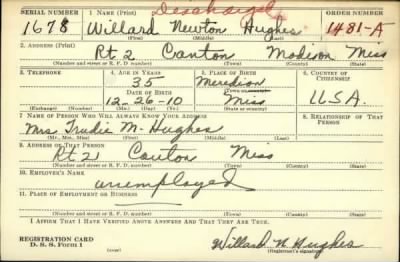 Discharged
SERIAL NUMBER 1. NAME (Print) ORDER NUMBER
1678 Willard Newton Hughes 1481-A
(First) (Middle) (Last)
2. ADDRESS (Print)
Rt 2 Canton Madison Miss
(Number and street or R. F. D. number) (Town) (County) (State)
3. TELEPHONE 4. AGE IN YEARS 5. PLACE OF BIRTH 6. COUNTRY OF CITIZENSHIP
35 Meredian
DATE OF BIRTH (Town or county)
12-26-10 Miss U.S.A.
(Exchange) (Number) (Mo.) (Day) (Yr.) (State or country)
7. NAME OF PERSON WHO WILL ALWAYS KNOW YOUR ADDRESS 8. RELATIONSHIP OF THAT PERSON
Mrs Trudie M. Hughes
(Mr., Mrs., Miss) (First) (Middle) (Last)
9. ADDRESS OF THAT PERSON
Rt 2 Canton Miss
(Number and street or R. F. D. number) (Town) (County) (State)
10. EMPLOYER'S NAME
unemployed
11. PLACE OF EMPLOYMENT OR BUSINESS
(Number and street or R. F. D. number) (Town) (County) (State)
I AFFIRM THAT I HAVE VERIFIED ABOVE ANSWERS AND THAT THEY ARE TRUE.
REGISTRATION CARD
D. S. S. FORM 1 Willard N Hughes
(Registrant's signature)